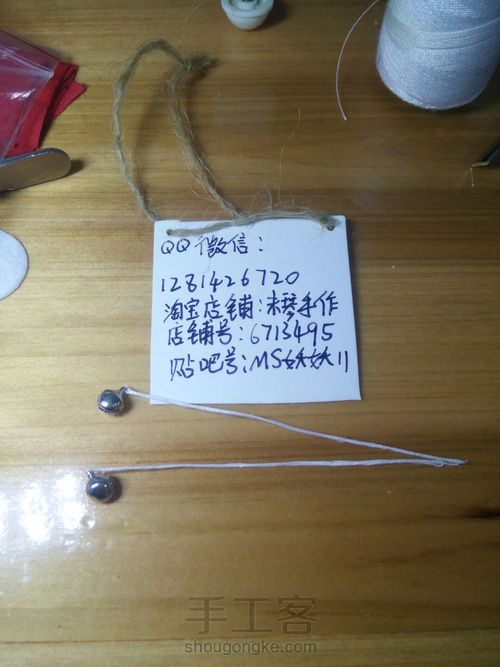 QQ微信：
1281426720
淘宝店铺：木琴手作
店铺号：6713495
贴吧号：MS妖妖11
手工客
shougongke.com